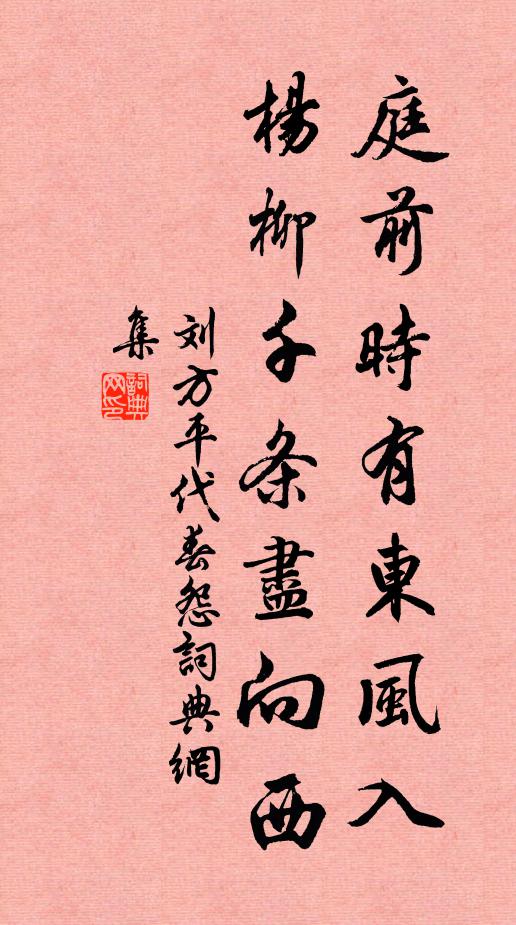 庭前時有東風入
楊柳千条盡向西
刘方平代春怨詞典網
集
詞典
网印